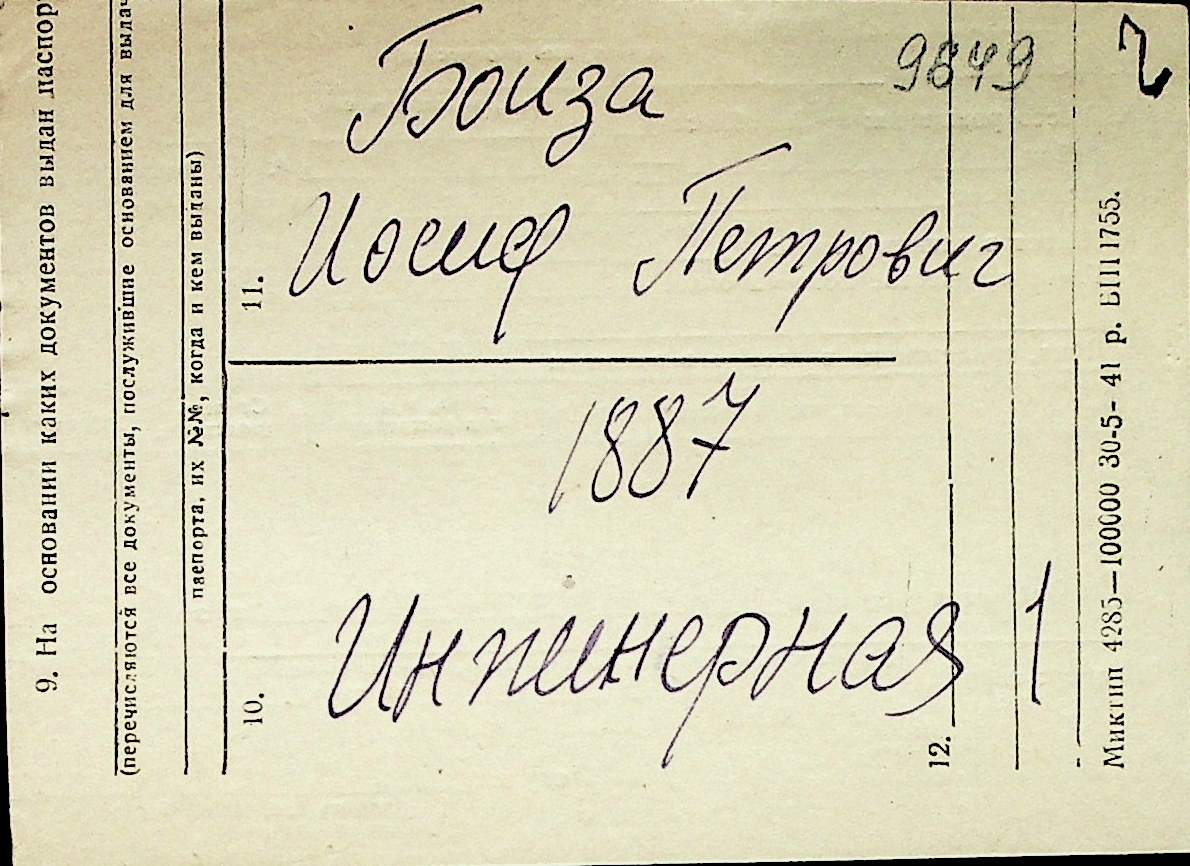 Боиза
9849
2
Иосиф Петрович
1887
Инжинерная 1
9. На основании каких документов выдан паспор
(перечисляются все документы, послужившие основанием для выдач
паспорта, их №№, когда и кем выданы)
10.
11.
12.
Миктип 4285—100000 30-5- 41 р. БШ11755.